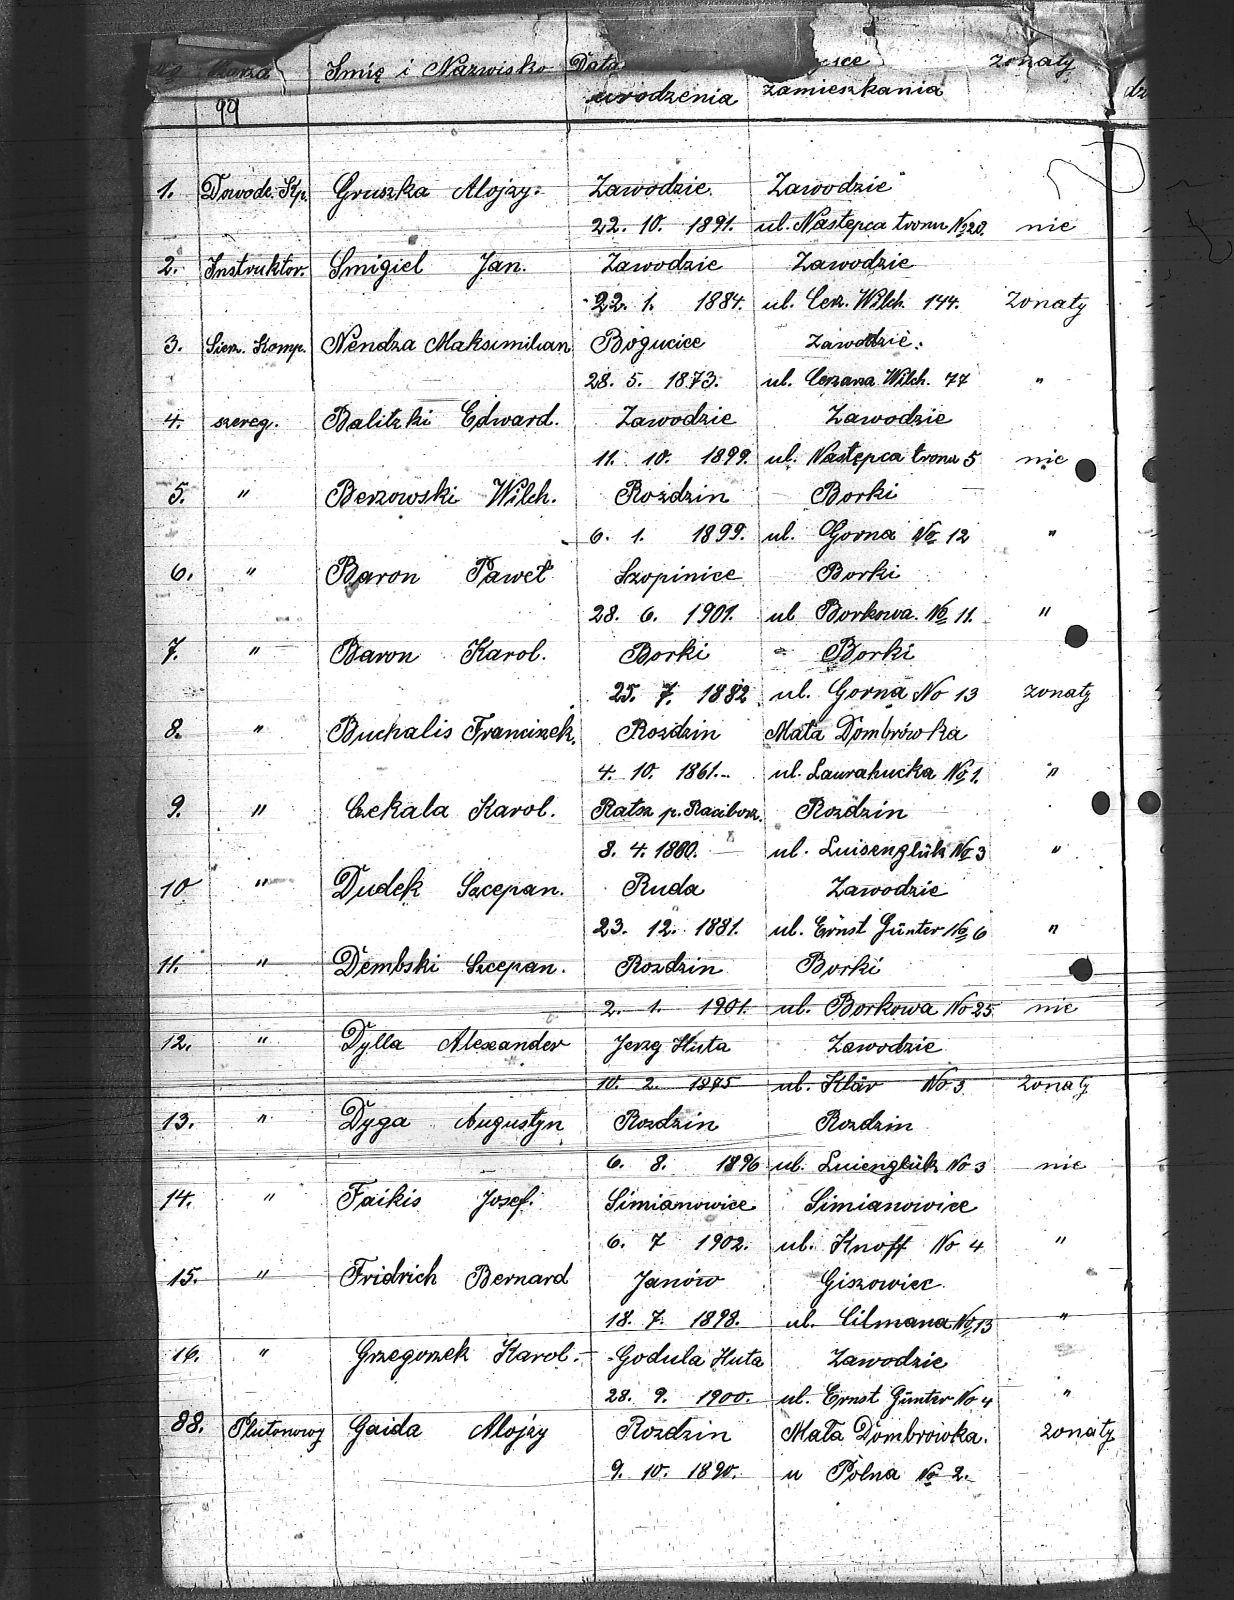 Imię i Nazwisko Data żonaty
99 urodzenia zamieszkania
1. Dowódc. Kp. Gruszka Alojzy. Zawodzie Zawodzie
22. 10. 1891. ul. Następca tronu No 20. nie
2. Instruktor. Smigiel Jan. Zawodzie Zawodzie
22. 1. 1884. ul. Cerz. Wilch. 144. Zonaty
3. Sierz. Komp. Nendza Maksimilian Bogucice Zawodzie.
28. 5. 1873. ul. Cerzana Wilch. 77 "
4. szereg. Balitzki Edward. Zawodzie Zawodzie
11. 10. 1899. ul. Następca tronu 5 nie
5. " Berzowski Wilch. Rozdzin Borki
6. 1. 1899. ul. Gorna No 12 "
6. " Baron Paweł Szopinice Borki
28. 6. 1901. ul Borkowa. No 11. "
7. " Baron Karol. Borki Borki
25. 7. 1882 ul. Gorna No 13 zonaty
8. " Buchalis Franciszek. Rozdzin Mała Dombrówka
4. 10. 1861. ul. Laurahucka No 1. "
9. " Czekala Karol. Ratsz p. Raciborz. Rozdzin
8. 4. 1880. ul. Luisenglük No 3 "
10 " Dudek Szcepan. Ruda Zawodzie
23. 12. 1881. ul. Ernst Günter No 6 "
11. " Dembski Szcepan. Rozdzin Borki
2. 1. 1901. ul. Borkowa No 25 nie
12. " Dylla Alexander Jerzg Huta Zawodzie
10. 2. 1875 ul. Klär No 3 Zonaty
13. " Dyga Augustyn Rozdzin Rozdzin
6. 8. 1896 ul. Luienglük No 3 nie
14. " Faikis Josef. Simianowice Simianowice
6. 7 1902. ul. Knoff No 4 "
15. " Fridrich Bernard Janów Giszowiec
18. 7. 1898. ul. Cilmana No 13 "
16. " Grzegorzek Karol. Godula Huta Zawodzie
28. 9. 1900. ul. Ernst Günter No 4 "
88. Plutonowy Gaida Alojzy Rozdzin Mała Dombrowka. Zonaty
9. 10. 1890. u Polna No 2.